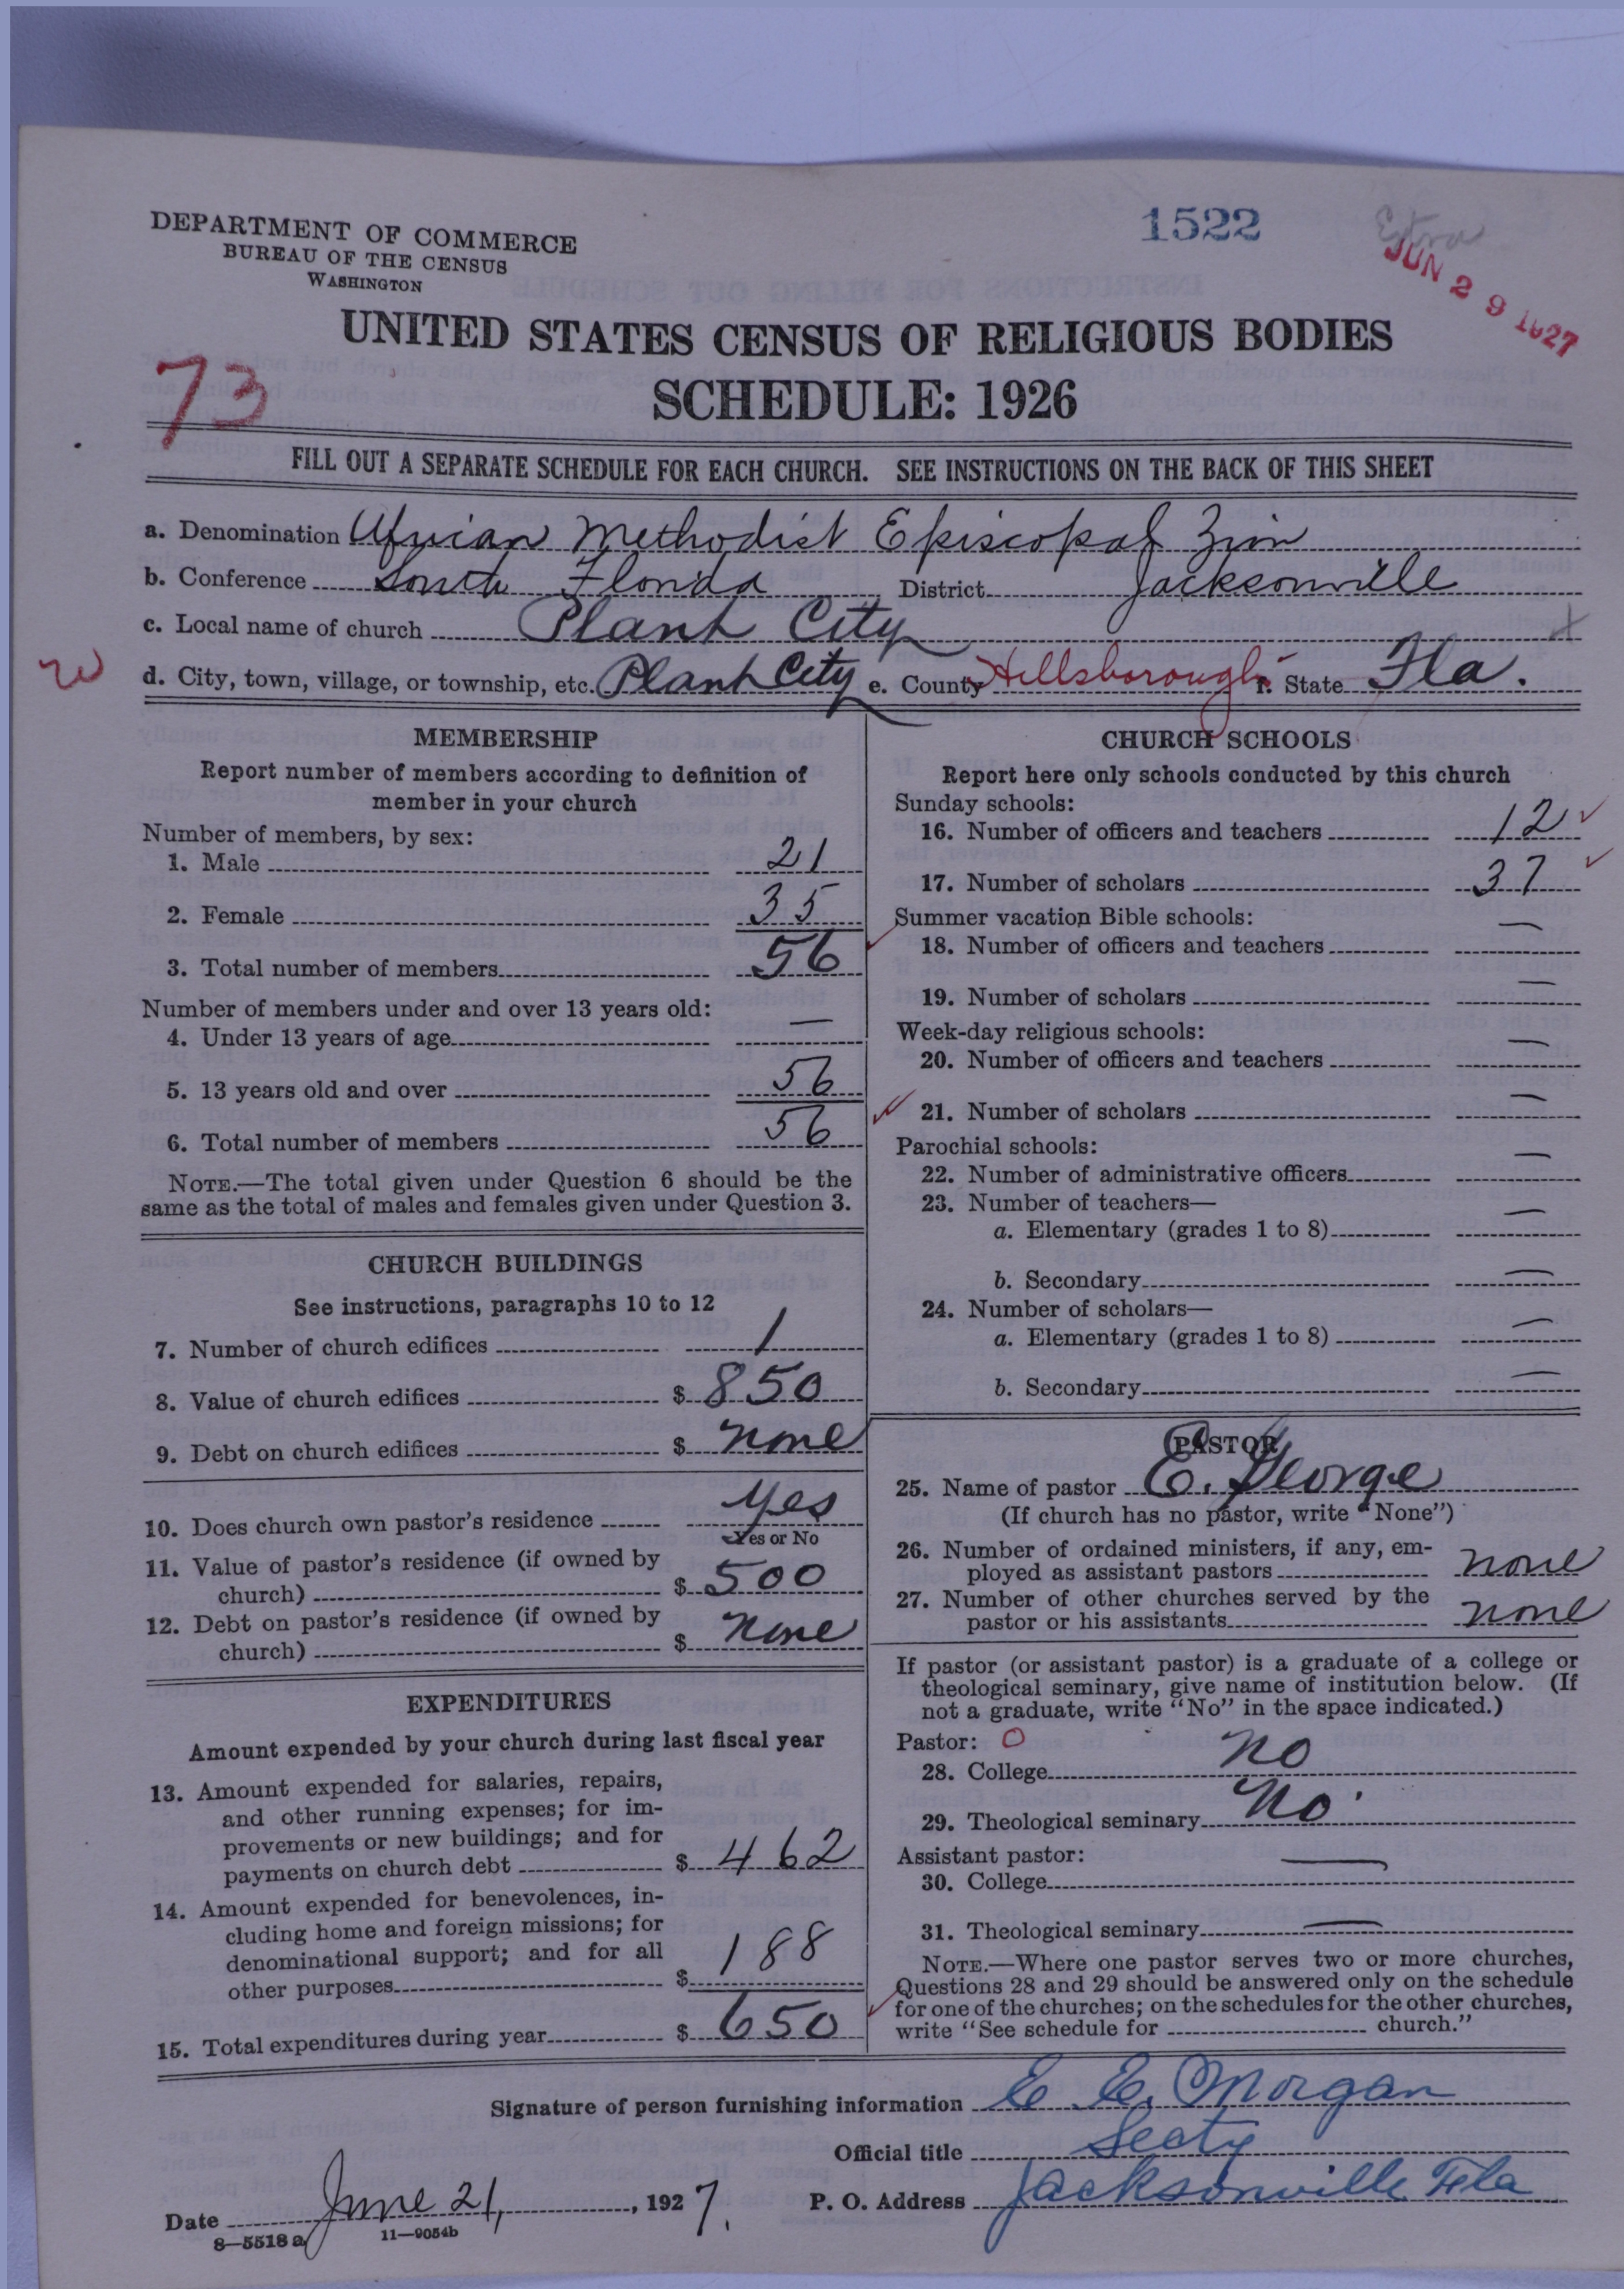 DEPARTMENT OF COMMERCE
BUREAU OF THE CENSUS
WASHINGTON
1522
Extra
JUN 29 1927
UNITED STATES CENSUS OF RELIGIOUS BODIES
SCHEDULE: 1926
73
FILL OUT A SEPARATE SCHEDULE FOR EACH CHURCH. SEE INSTRUCTIONS ON THE BACK OF THIS SHEET
a. Denomination African Methodist Episcopal Zion
b. Conference South Florida District Jacksonville
c. Local name of church Plant City
d. City, town, village, or township, etc. Plant City e. County Hillsborough f. State Fla.
MEMBERSHIP
Report number of members according to definition of
member in your church
Number of members, by sex:
1. Male 21
2. Female 35
3. Total number of members 56
Number of members under and over 13 years old:
4. Under 13 years of age —
5. 13 years old and over 56
6. Total number of members 56
NOTE.—The total given under Question 6 should be the
same as the total of males and females given under Question 3.
CHURCH BUILDINGS
See instructions, paragraphs 10 to 12
7. Number of church edifices 1
8. Value of church edifices $ 850
9. Debt on church edifices $ none
10. Does church own pastor's residence Yes
Yes or No
11. Value of pastor's residence (if owned by
church) $ 500
12. Debt on pastor's residence (if owned by
church) $ None
EXPENDITURES
Amount expended by your church during last fiscal year
13. Amount expended for salaries, repairs,
and other running expenses; for im-
provements or new buildings; and for
payments on church debt $ 462
14. Amount expended for benevolences, in-
cluding home and foreign missions; for
denominational support; and for all
other purposes $ 188
15. Total expenditures during year $ 650
CHURCH SCHOOLS
Report here only schools conducted by this church
Sunday schools:
16. Number of officers and teachers 12
17. Number of scholars 37
Summer vacation Bible schools:
18. Number of officers and teachers —
19. Number of scholars —
Week-day religious schools:
20. Number of officers and teachers —
21. Number of scholars —
Parochial schools:
22. Number of administrative officers —
23. Number of teachers—
a. Elementary (grades 1 to 8) —
b. Secondary —
24. Number of scholars—
a. Elementary (grades 1 to 8) —
b. Secondary —
PASTOR
25. Name of pastor E. George
(If church has no pastor, write "None")
26. Number of ordained ministers, if any, em-
ployed as assistant pastors none
27. Number of other churches served by the
pastor or his assistants none
If pastor (or assistant pastor) is a graduate of a college or
theological seminary, give name of institution below. (If
not a graduate, write "No" in the space indicated.)
Pastor: O
28. College no
29. Theological seminary No
Assistant pastor:
30. College —
31. Theological seminary —
NOTE.—Where one pastor serves two or more churches,
Questions 28 and 29 should be answered only on the schedule
for one of the churches; on the schedules for the other churches,
write "See schedule for church."
Signature of person furnishing information E E. Morgan
Official title Secty
Date June 21, 1927. P. O. Address Jacksonville Fla
8—5518 a 11—9054b